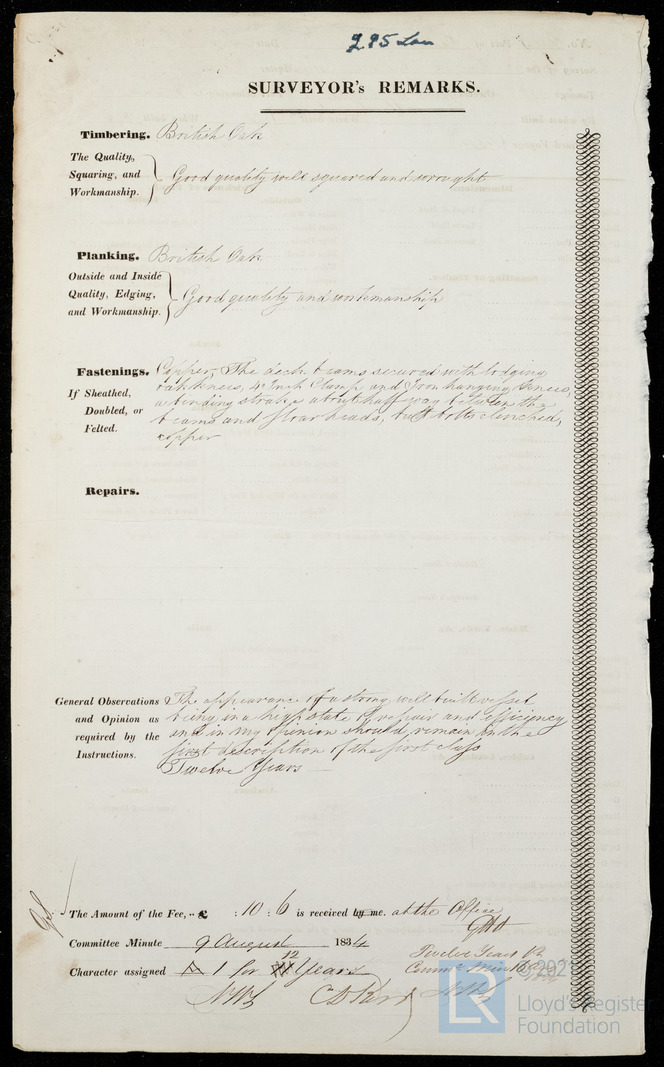 295 Lon
SURVEYOR's REMARKS.
Timbering. British Oak
The Quality,
Squaring, and
Workmanship.
Good quality well squared and wrought
Planking. British Oak
Outside and Inside
Quality, Edging,
and Workmanship.
Good quality and workmanship
Fastenings. Copper, The deck beams secured with lodging
If Sheathed,
Doubled, or
Felted.
oak knees, 4 Inch Clamp and Iron hanging knees,
a binding strake about half way between the
beams and floor heads, butt bolts clenched,
copper
Repairs.
General Observations
and Opinion as
required by the
Instructions.
The appearance of a strong well built vessel
being in a high state of repair and efficiency
and in my opinion should remain in the
first description of the first class
Twelve Years
The Amount of the Fee, £ : 10 : 6 is received by me. at the Office
Committee Minute 9 August 1834
Character assigned A 1 for 12 Years
Twelve Years
LR
Lloyd's Register
Foundation